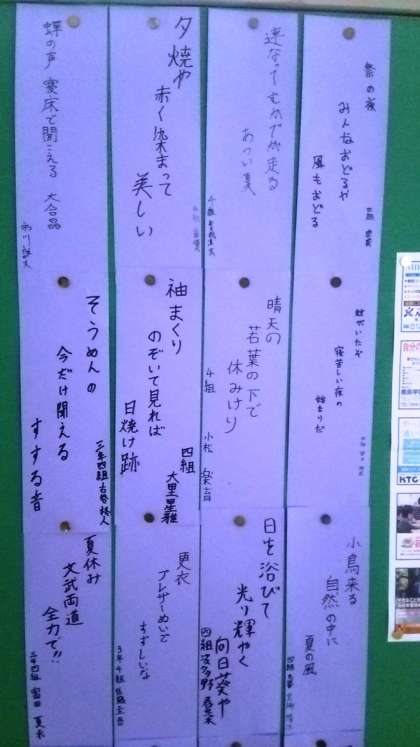 祭の夜
みんなおどるや
風もおどる
連なってむかでが走る
あつい夏
夕焼や
赤く染まって
美しい
蝉の声 寝床で聞こえる 大合唱
蚊がいたぞ
寝苦しい夜の
始まりだ
晴天の
若葉の下で
休みけり
4組 小松
袖まくり
のぞいて見れば
日焼け跡
四組 大里星雅
そうめんの
今だけ聞える
すする音
三年四組
小鳥来る
自然の中に
夏の風
日を浴びて
光り輝やく
向日葵や
四組 波多野 春菜
更衣
ブレザーぬいで
すずしいな
3年4組 佐藤
夏休み
文武両道
全力で!!
三年四組 富田 夏未
KTC